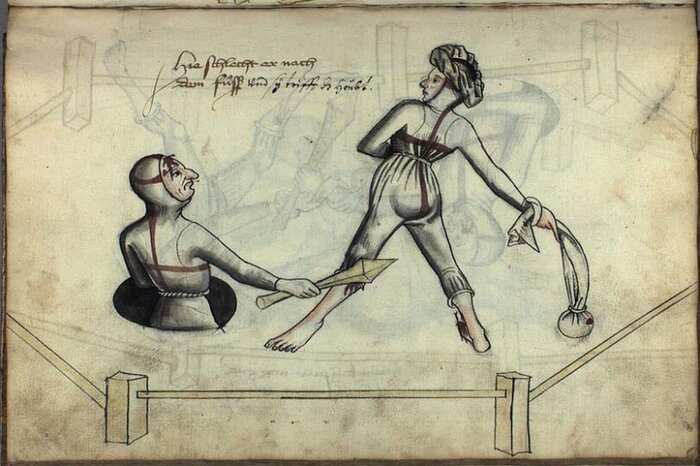 Hie schlecht er nach
dem fuͦss vnd sy trifft dz houbt.